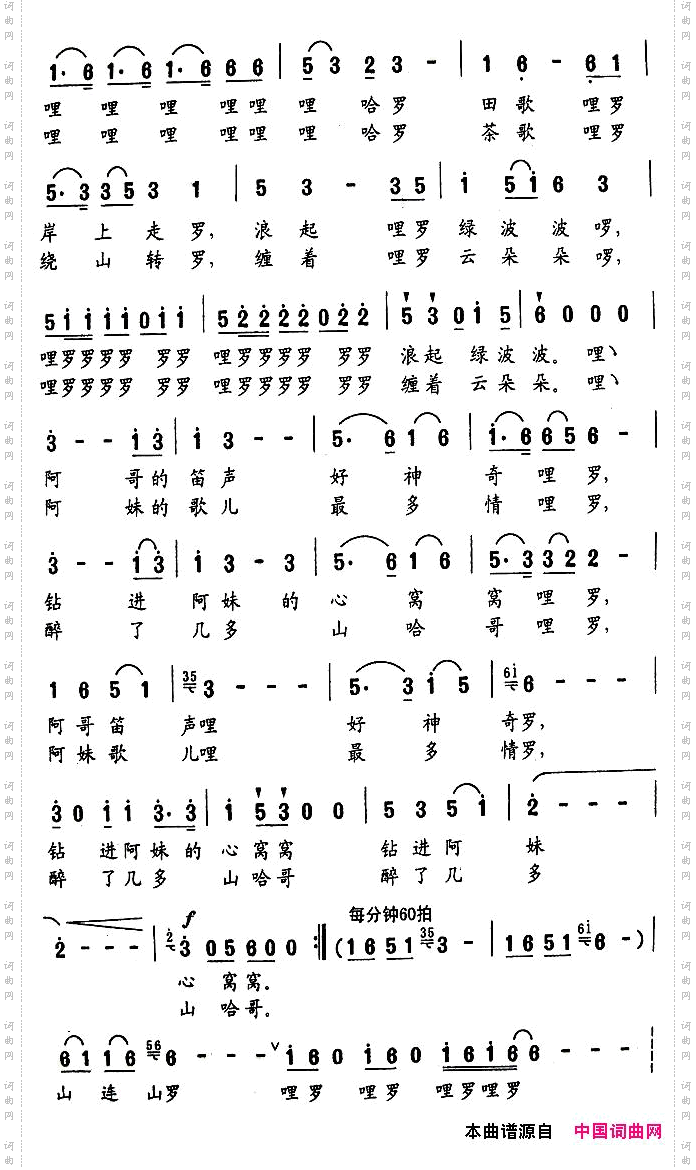 1·6 1·6 1·6 6 6 | 5 3 2 3 - | 1 6 - 6 1 |
哩 哩 哩 哩哩 哩 哈罗 田歌 哩罗
哩 哩 哩 哩哩 哩 哈罗 茶歌 哩罗
5·3 3 5 3 1 | 5 3 - 3 5 | i 5 i 6 3 |
岸 上 走 罗, 浪 起 哩罗 绿 波 波 啰,
绕 山 转 罗, 缠 着 哩罗 云 朵 朵 啰,
5 i i i i 0 i i | 5 2 2 2 2 0 2 2 | 5 3 0 i 5 | 6 0 0 0 |
哩罗罗罗罗 罗罗 哩罗罗罗罗 罗罗 浪起 绿波 波。 哩
哩罗罗罗罗 罗罗 哩罗罗罗罗 罗罗 缠着 云朵 朵。 哩
3 - - i 3 | i 3 - - | 5· 6 1 6 | i·6 6 5 6 |
阿 哥的笛声 好 神 奇哩罗,
阿 妹的歌儿 最 多 情哩罗,
3 - - i 3 | i 3 - 3 | 5· 6 1 6 | 5·3 3 2 2 |
钻 进 阿妹 的 心 窝 窝哩罗,
醉 了 几多 山 哈 哥哩罗,
1 6 5 1 | 35 3 - - - | 5· 3 i 5 | 6i 6 - - - |
阿哥笛 声哩 好 神 奇罗,
阿妹歌 儿哩 最 多 情罗,
3 0 i i 3·3 | i 5 3 0 0 | 5 3 5 5 i | 2 - - - |
钻 进阿妹的 心 窝窝 钻进阿 妹
醉 了几多 山哈哥 醉了几 多
f 每分钟60拍
2 - - - | 2 3 0 5 6 0 0 :‖ (1 6 5 1 35 3 - | 1 6 5 1 6i 6 - ) |
心 窝窝。
山 哈哥。
6 1 1 6 56 6 - - - ∨ i 6 0 i 6 0 i 6 i 6 6 - - - |
山 连 山罗 哩罗 哩罗 哩罗哩罗
本曲谱源自 中国词曲网
词曲网